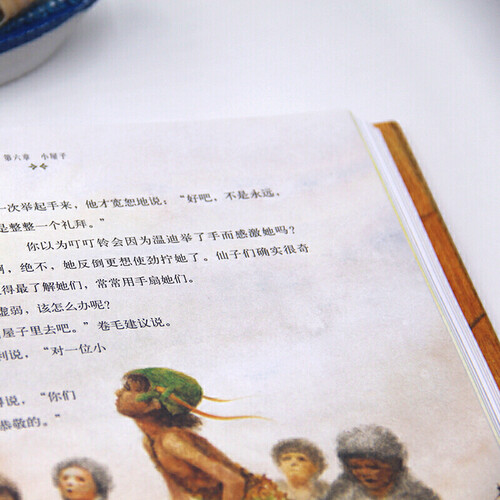 第六章 小屋子
一次举起手来，他才宽恕地说：“好吧，不是永远，
是整整一个礼拜。”
你以为叮叮铃会因为温迪举了手而感激她吗？
，绝不，她反倒更想使劲拧她了。仙子们确实很奇
得最了解她们，常常用手扇她们。
虚弱，该怎么办呢？
屋子里去吧。”卷毛建议说。
利说，“对一位小
得说，“你们
恭敬的。”